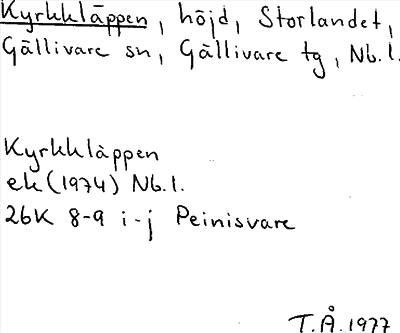 Kyrkkläppen, höjd, Storlandet,
Gällivare sn, Gällivare tg, Nb.l.
Kyrkkläppen
ek (1974) Nb.l.
26K 8-9 i-j Peinisvare
T.Å.1977